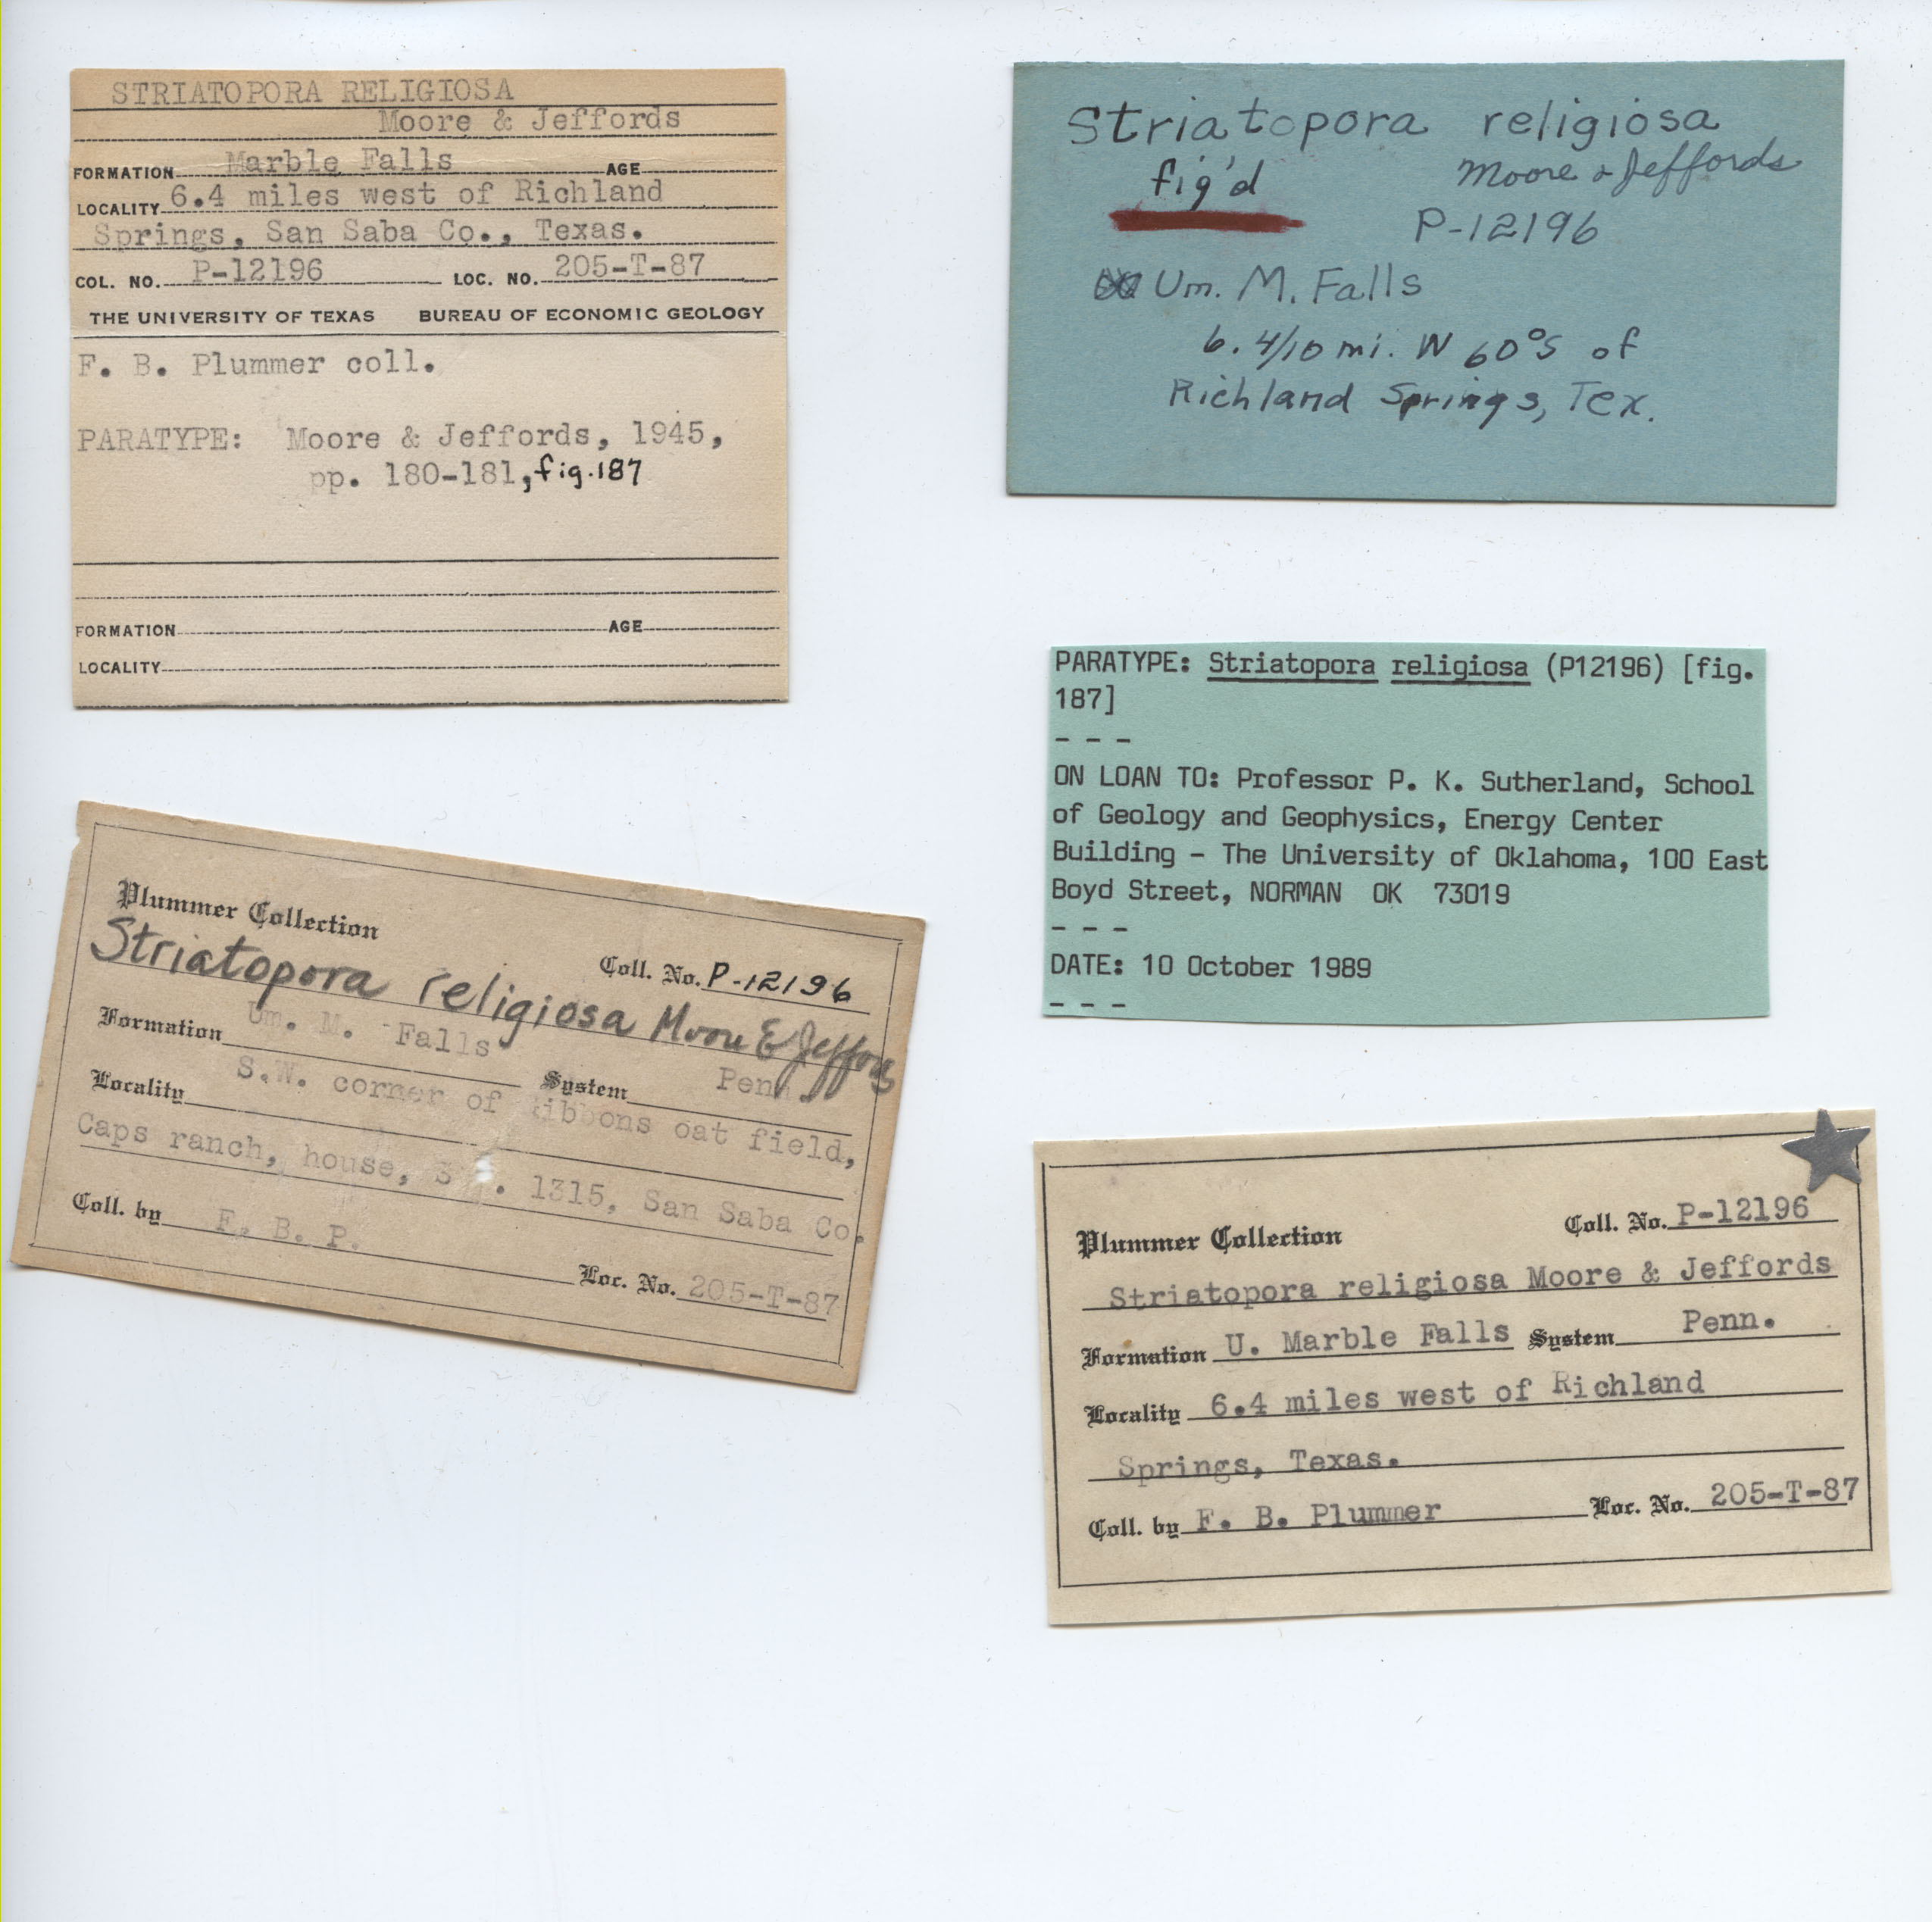 STRIATOPORA RELIGIOSA
Moore & Jeffords
FORMATION Marble Falls AGE
LOCALITY 6.4 miles west of Richland
Springs, San Saba Co., Texas.
COL. NO. P-12196 LOC. NO. 205-T-87
THE UNIVERSITY OF TEXAS BUREAU OF ECONOMIC GEOLOGY
F. B. Plummer coll.
PARATYPE: Moore & Jeffords, 1945,
pp. 180-181, fig.187
FORMATION AGE
LOCALITY
Striatopora religiosa
fig'd Moore & Jeffords
P-12196
Um. M. Falls
6. 4/10 mi. W 60°S of
Richland Springs, Tex.
PARATYPE: Striatopora religiosa (P12196) [fig.
187]
- - -
ON LOAN TO: Professor P. K. Sutherland, School
of Geology and Geophysics, Energy Center
Building - The University of Oklahoma, 100 East
Boyd Street, NORMAN OK 73019
- - -
DATE: 10 October 1989
- - -
Plummer Collection
Coll. No. P-12196
Striatopora religiosa Moore & Jeffords
Formation Um. M. Falls System Penn.
Locality S.W. corner of oat field,
Caps ranch, house, 1315, San Saba Co.
Coll. by F. B. P.
Loc. No. 205-T-87
Plummer Collection Coll. No. P-12196
Striatopora religiosa Moore & Jeffords
Formation U. Marble Falls System Penn.
Locality 6.4 miles west of Richland
Springs, Texas.
Coll. by F. B. Plummer Loc. No. 205-T-87